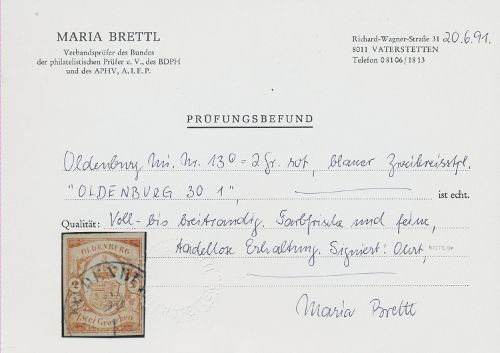 MARIA BRETTL
Verbandsprüfer des Bundes
der philatelistischen Prüfer e. V., des BDPH
und des APHV, A.I.E.P.
Richard-Wagner-Straße 31
8011 VATERSTETTEN
Telefon 08106/1813
20.6.91.
PRÜFUNGSBEFUND
Oldenburg Mi. Nr. 13 = 2 Gr. rot, blauer Zweikreisstpl.
"OLDENBURG 30 1", ist echt.
Qualität: Voll- bis breitrandig. Farbfrische und feine,
tadellose Erhaltung. Signiert:
OLDENBURG
Zwei Groschen
Maria Brettl